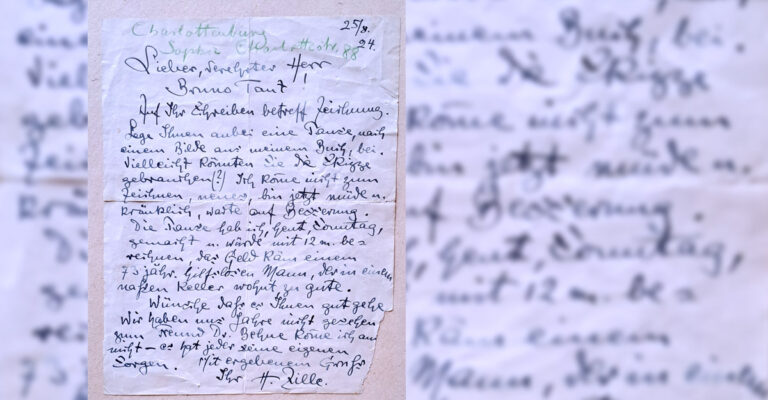 Charlottenburg
Sophie Charlottestr. 88
25/8.
24.
Lieber, verehrter Herr
Bruno Taut!
Auf Ihr Schreiben betreff Zeichnung.
Lege Ihnen anbei eine Pause, nach
einem Bilde aus meinem Buch, bei.
Vielleicht könnten Sie die Skizze
gebrauchen(?) Ich kome nicht zum
zeichnen, neues, bin jetzt müde u.
kränklich, warte auf Besserung.
Die Pause hab ich, heut, Sonntag,
gemacht u. würde mit 12 m. be=
rechnen, das Geld käm einem
73 jähr. hilfslosen Mann, der in einem
naßen Keller wohnt zu gute.
Wünsche daß es Ihnen gut gehe
Wir haben uns Jahre nicht gesehen
zum Freund Dr. Behne kome ich auch
nicht – es hat jeder seine eigenen
Sorgen. Mit ergebenem Gruß
Ihr H. Zille.